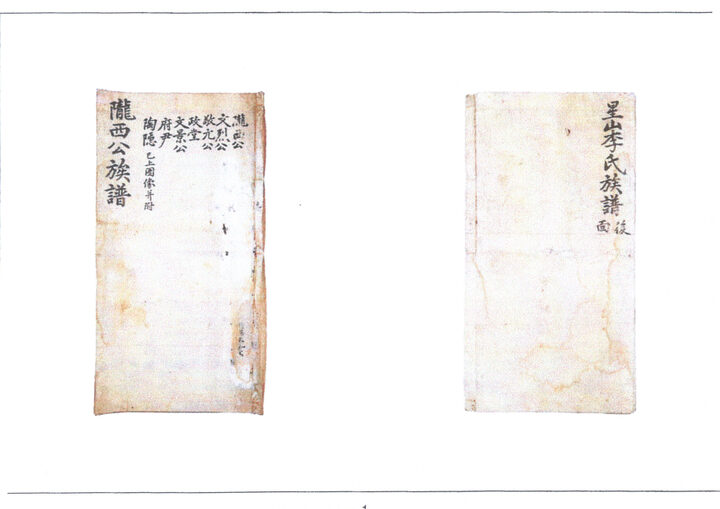 隴西公族譜
隴西公
文烈公
敬元公
政堂
文景公
府尹
陶隱 已上图像并附
星山李氏族譜
後面